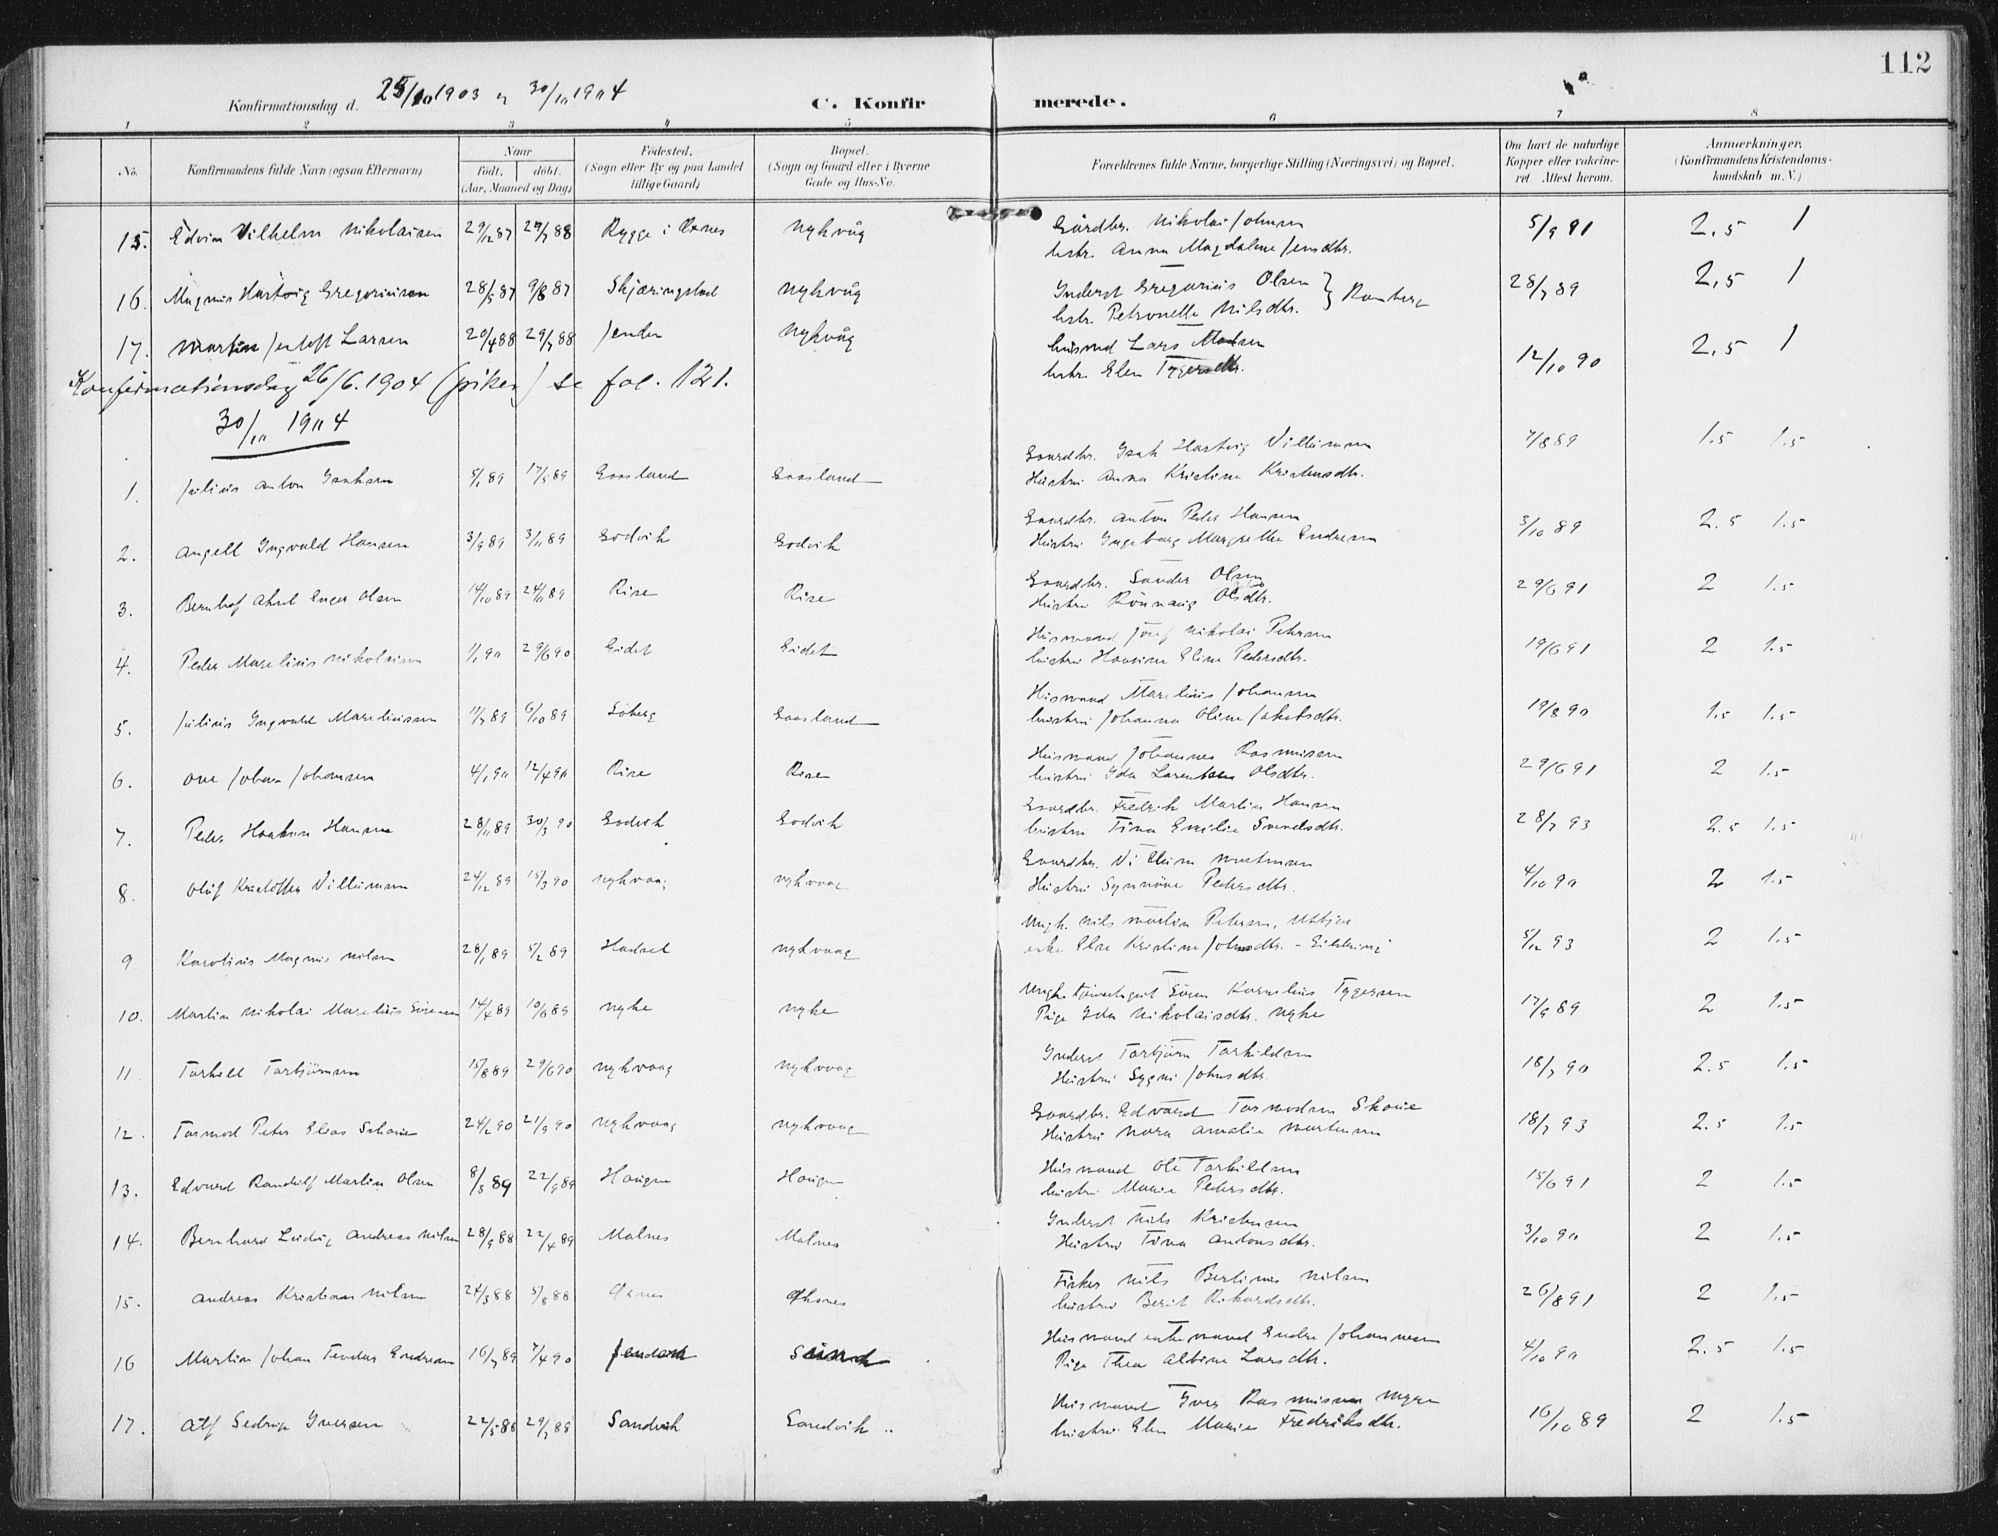 112
Konfirmationsdag d. 25/10 1903 og 30/10 1904
C. Konfirmerede.
1 2 3 4 5 6 7 8
No. Konfirmandens fulde Navn (ogsaa Efternavn) Naar födt. döbt. (Aar, Maaned og Dag) Födested. (Sogn eller By og paa Landet tillige Gaard) Bopæl. (Sogn og Gaard eller i Byerne Gade og Hus-No. Forældrenes fulde Navne, borgerlige Stilling (Næringsvei) og Bopæl. Om havt de naturlige Kopper eller vaccineret Attest herom. Anmærkninger. (Konfirmandens Kristendomskundskab m.V.)
15. Edvin Vilhelm Nikolaisen 29/12 87 29/7 88 Rygge i Öxnes Nykvåg Gårdbr. Nikolai Johnsen 5/9 91 2,5 1
hstr. Anna Magdalene Jensdtr.
16. Magnus Hartvig Gregoriusen 28/5 87 9/8 87 Skjæringstad Nykvåg Inderst Gregorius Olsen } Ramberg 28/7 89 2,5 1
hstr. Petronelle Nilsdtr.
17. Martin Jentoft Larsen 20/4 88 29/7 88 Jenden Nykvåg husmd Lars Madsen 12/10 90 2,5 1
hstr. Elen Tygersdtr.
Konfirmationsdag 26/6. 1904 (piker) se fol. 121.
30/10 1904
1. Julius Anton Isaksen 5/1 89 17/5 89 Gaasland Gaasland Gaardbr. Isak Hartvig Villumsen 7/8 89 1.5 1.5
Hustru Anna Kristine Kristensdtr.
2. Angell Ingvald Hansen 3/9 89 3/11 89 Godvik Godvik Gaardbr. Anton Peder Hansen 3/10 89 2.5 1.5
Hustru Ingeborg Margrethe Endresen
3. Bernhof Aksel Enger Olsen 14/10 89 24/11 89 Rise Rise Gaardbr. Sander Olsen 29/6 91 2 1.5
Hustru Rönnaug Olsdtr.
4. Peder Marelius Nikolaisen 1/1 90 29/6 90 Eidet Eidet Husmand Josef Nikolai Petersen 19/6 91 2 1.5
hustru Hansine Eline Pedersdtr.
5. Julius Ingvald Mareliussen 11/7 89 6/10 89 Söberg Gaasland Husmand Marelius Johansen 19/8 90 1.5 1.5
hustru Johanna Oline Jakobsdtr.
6. Ove Johan Johansen 4/1 90 12/4 90 Rise Rise Husmand Johannes Rasmusen 29/6 91 2 1.5
hustru Ida Larentsen Olsdtr.
7. Peder Haakon Hansen 28/11 89 30/3 90 Godvik Godvik Gaardbr. Fredrik Martin Hansen 28/7 93 2.5 1.5
hustru Tina Emilie Svendsdtr.
8. Oluf Kristoffer Villumsen 24/12 89 15/3 90 Nykvaag Nykvaag Gaardbr. Villum Mortensen 4/10 90 2 1.5
Hustru Synnöve Pedersdtr.
9 Karolius Magnus Nilsen 28/1 89 5/2 89 Hadsel Nykvaag Ungk. Nils Martin Petersen, 5/12 93 2 1.5
enke Else Kristine Johnsdtr. -
10. Martin Nikolai Marelius Sörensen 14/4 89 10/6 89 Nyke Nyke Ungk. Sören Kornelius Tygersen 17/9 89 2 1.5
Pige Ida Nikolaisdtr. Nyke
11. Torkell Torbjörnsen 15/8 89 29/6 90 Nykvaag Nykvaag Inderst Torbjörn Torkildsen 18/7 90 2.5 1.5
Hustru Sygni Johnsdtr.
12. Tormod Peter Elias Schoue 24/2 90 21/9 90 Nykvaag Nykvaag Gaardbr. Edvard Tormodsen Skoue 18/7 93 2.5 1.5
Hustru Nora Amalie Mortensen
13. Edvard Randulf Martin Olsen 8/8 89 22/9 89 Haugen Haugen Husmand Ole Torkildsen 15/6 91 2 1.5
hustru Marie Pedersdtr.
14. Bernhard Ludvig Andreas Nilsen 28/9 88 22/4 89 Malnes Malnes Inderst Nils Kristensen 3/10 90 2 1.5
Hustru Tina Antonsdtr.
15. Andreas Kristian Nilsen 24/3 88 5/8 88 Öxnes Öksnes Fisker Nils Berlines Nilsen 26/8 91 2 1.5
hustru Berit Rikardsdtr.
16 Martin Johan Teodor Endresen 16/7 89 7/4 90 Sund Husmand enkemand Endre Johannesen 4/10 90 2.5 1.5
Pige Thea Albine Larsdtr.
17. Alf Sedrup Iversen 22/5 88 29/7 88 Sandvik Sandvik Husmand Iver Rasmussen Myre 16/10 89 2 1.5
hustru Elen Marie Fredriksdtr.